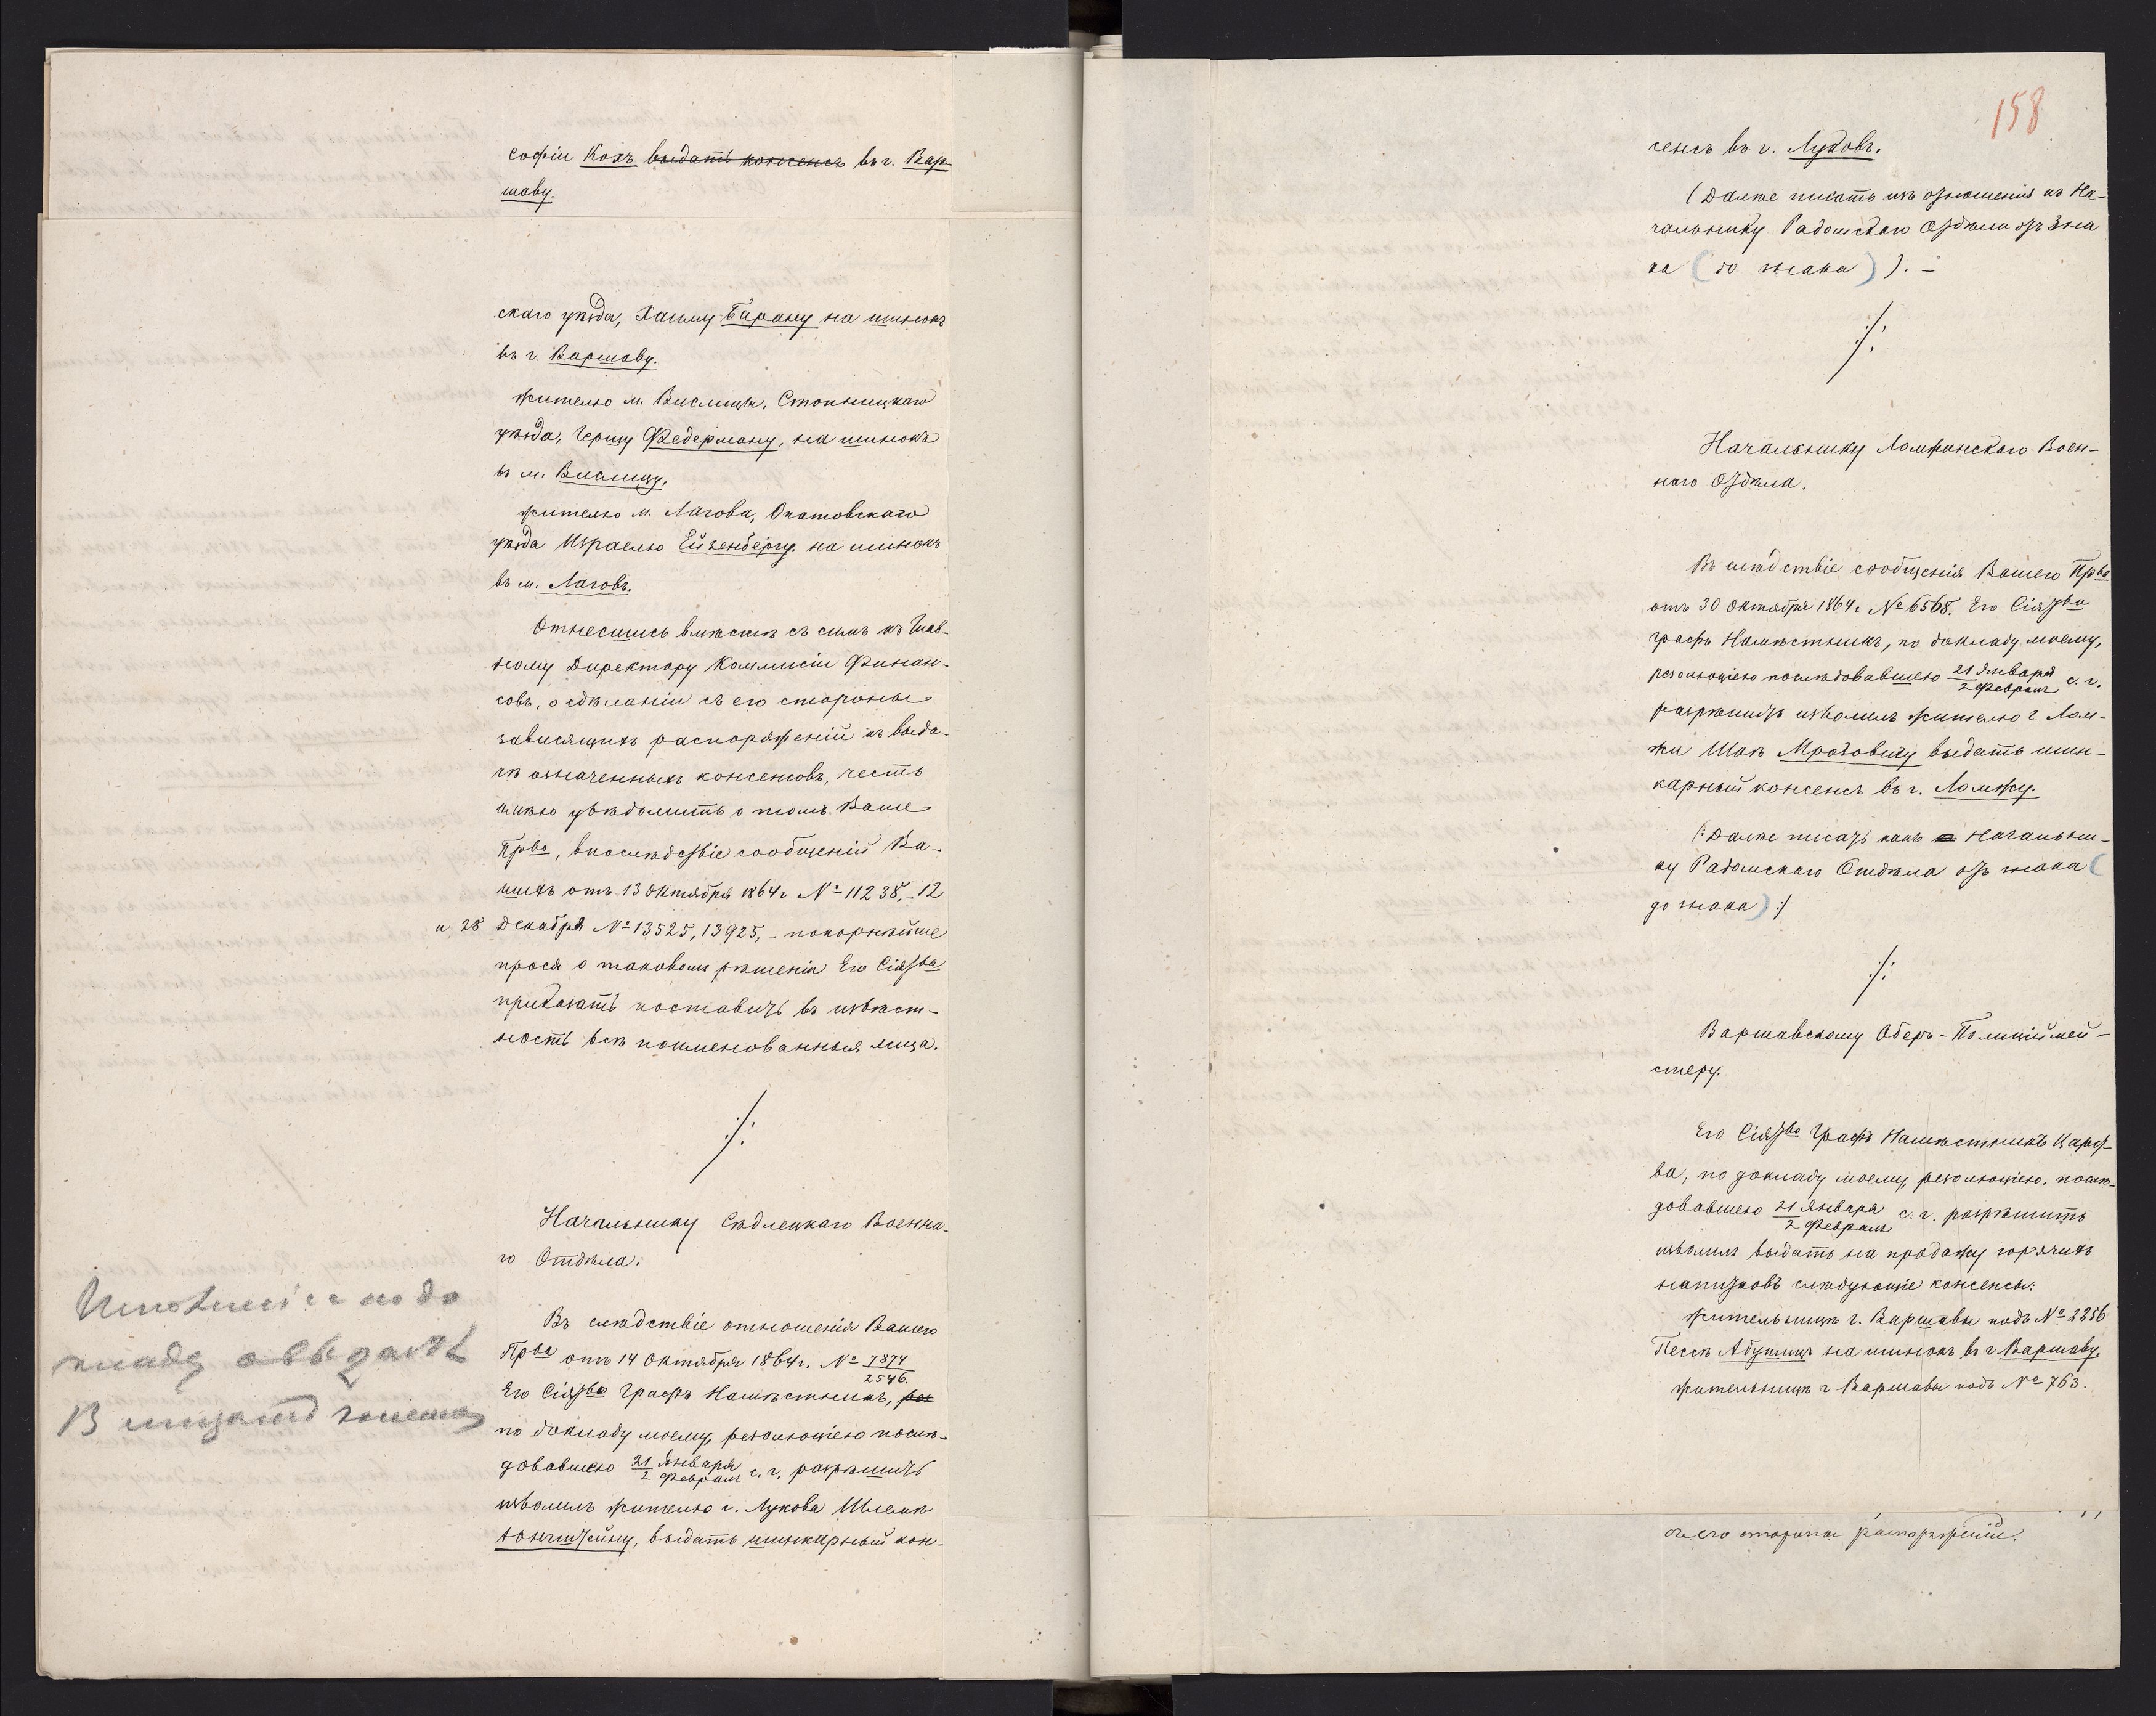 софіи Кохъ выдать консенсъ въ г. Вар-
шаву.
скаго уѣзда, Хаиму Барану на шинокъ
въ г. Варшаву.
жителю м. Вислицы, Стопницкаго
уѣзда, Гершу Федерману, на шинокъ
въ м. Вислицу.
жителю м. Лагова, Опатовскаго
уѣзда Израелю Ейзенбергу на шинокъ
въ м. Лаговъ.
Отнесшись вмѣстѣ съ симъ къ Глав-
ному Директору Коммисіи Финан-
совъ, о сдѣланіи съ его стороны
зависящихъ распоряженій къ выда-
чѣ означенныхъ консенсовъ, честь
имѣю увѣдомить о томъ Ваше
Прво, впослѣдствіе сообщеній Ва-
шихъ отъ 13 Октября 1864 г № 11238, - 12
и 28 Декабря № 13525, 13925, - покорнѣйше
прося о таковомъ рѣшеніи Его Сіятва
приказать поставить въ извѣст-
ность всѣ поименованныя лица.
./.
Начальнику Сѣдлецкаго Военна-
го Отдѣла.
Въ слѣдствіе отношенія Вашего
Прва отъ 14 Октября 1864 г. № 7874/2546.
Его Сіятво Графъ Намѣстникъ, рез
по докладу моему, резолюціею послѣ-
довавшею 21 Января/2 Февраля с. г. разрѣшить
изволилъ жителю г. Лукова Шлемѣ
выдать шинкарный кон-
В
158
сенсъ въ г. Луковъ.
(Далѣе писать изъ отношенія къ На-
чальнику Радомскаго Отдѣла отъ зна
ка (до знака) ). -
./.
Начальнику Ломжинскаго Воен-
наго Отдѣла.
Въ слѣдствіе сообщенія Вашего Прва
отъ 30 Октября 1864 г № 6568. Его Сіятво
Графъ Намѣстникъ, по докладу моему,
резолюціею послѣдовавшею 21 Января/2 Февраля с. г.
разрѣшить изволилъ жителю г Лом-
жи Мровичу выдать шин-
карный консенсъ въ г. Ломжу.
(: Далѣе писать какъ Начальни-
ку Радомскаго Отдѣла отъ знака (
до знака) :/
./.
Варшавскому Оберъ-Полиціймей-
стеру.
Его Сіятво Графъ Намѣстникъ Царст-
ва, по докладу моему, резолюціею, послѣ-
довавшею 21 Января/2 Февраля с. г. разрѣшить
изволилъ выдать на продажу горячихъ
напитковъ слѣдующіе консенсы:
жительницѣ г. Варшавы подъ № 2256
Песѣ на шинокъ въ г Варшаву,
жительницѣ г Варшавы подъ № 763.
его стороны распоряженій.